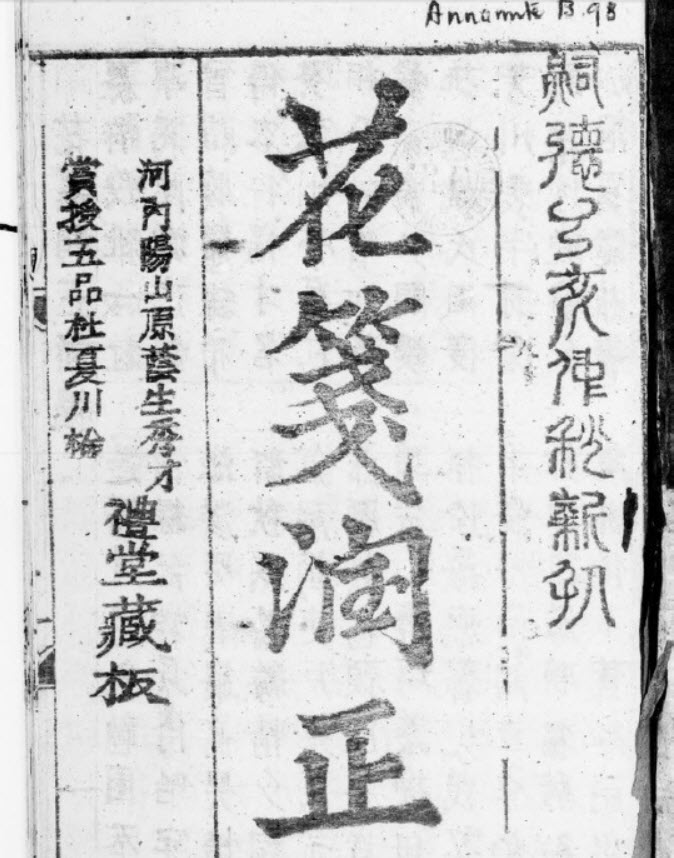 Annamite B. 98
嗣德乙亥仲秋新刊
花箋潤正
河內陽山原蔭生秀才
賞授五品杜夏川輪
禮堂藏板